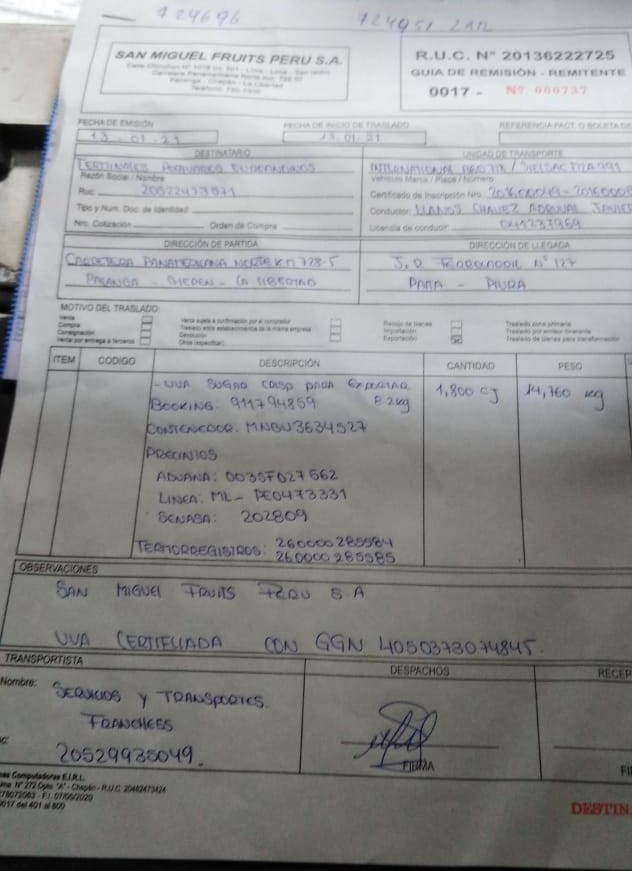 724696 724951
SAN MIGUEL FRUITS PERU S.A.
R.U.C. N° 20136222725
GUIA DE REMISIÓN - REMITENTE
0017 - N° 000737
FECHA DE EMISIÓN
13 - 01 - 21
FECHA DE INICIO DE TRASLADO
13.01.21
REFERENCIA FACT. O BOLETA DE
DESTINATARIO
UNIDAD DE TRANSPORTE
TERMINALES PORTUARIOS EUROANDINOS
Razón Social / Nombre
Ruc:
INTERNATIONAL
Vehículo Marca / Placa / Número
Certificado de Inscripción Nro.
Tipo y Num. Doc. de Identidad:
Conductor: LLANOS CHAVEZ JAVIER
Nro. Cotización: Orden de Compra:
Licencia de conducir:
DIRECCIÓN DE PARTIDA
DIRECCIÓN DE LLEGADA
CARRETERA PANAMERICANA NORTE KM 728.5
J.R. FERROCARRIL N° 127
PACANGA - CHEPEN - LA LIBERTAD
PAITA - PIURA
MOTIVO DEL TRASLADO:
Venta
Compra
Consignación
Venta por entrega a terceros
Venta sujeta a confirmación por el comprador
Traslado entre establecimientos de la misma empresa
Devolución
Otros (especificar)
Recojo de bienes
Importación
Exportación
Traslado zona primaria
Traslado por emisor itinerante
Traslado de bienes para transformación
ITEM CODIGO DESCRIPCIÓN CANTIDAD PESO
- UVA SUGAR CRISP PARA EXPORTAR 1,800 CJ 14,760 kg
BOOKING: 911794859 8.2kg
CONTENEDOR: MNBU3634527
PRECINTOS
ADUANA: 0035F027562
LINEA: ML- PE0473331
SENASA: 202809
TERMORREGISTROS: 260000285584
260000285585
OBSERVACIONES
SAN MIGUEL FRUITS PERU S A
UVA CERTIFICADA CON GGN 4050373074845.
TRANSPORTISTA
DESPACHOS
RECEP
Nombre: SERVICIOS Y TRANSPORTES
20529935049.
FIRMA
FI
nes Computadoras E.I.R.L.
ima N° 272 Dpto. "A" - Chepén - R.U.C. 20482473424
- F.I. 07/05/2020
0017 del 401 al 800
DESTINA